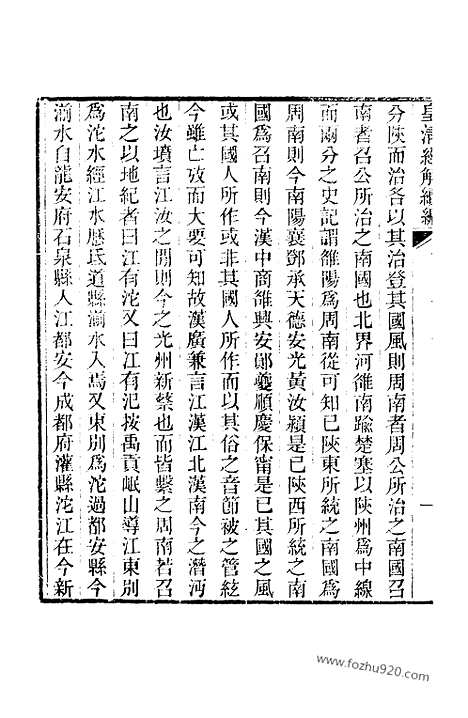 皇清經解續編
一
分陝而治各以其治登其國風則周南者周公所治之南國召
南者召公所治之南國也北界河雒南踰楚塞以陝州為中線
而兩分之史記謂雒陽為周南從可知已陝東所統之南國為
周南則今南陽襄鄧承天德安光黃汝潁是已陝西所統之南
國為召南則今漢中商雒興安鄖夔順慶保甯是已其國之風
或其國人所作或非其國人所作而以其俗之音節被之管絃
今雖亡攷而大要可知故漢廣兼言江漢江北漢南今之潛沔
也汝墳言江汝之閒則今之光州新蔡也而皆繫之周南若召
南之以地紀者曰江有沱又曰江有汜按禹貢岷山導江東別
為沱水經江水歷氐道縣湔水入焉又東別為沱過都安縣今
湔水自龍安府石泉縣入江都安今成都府灌縣沱江在今新
www.fozhu920.com